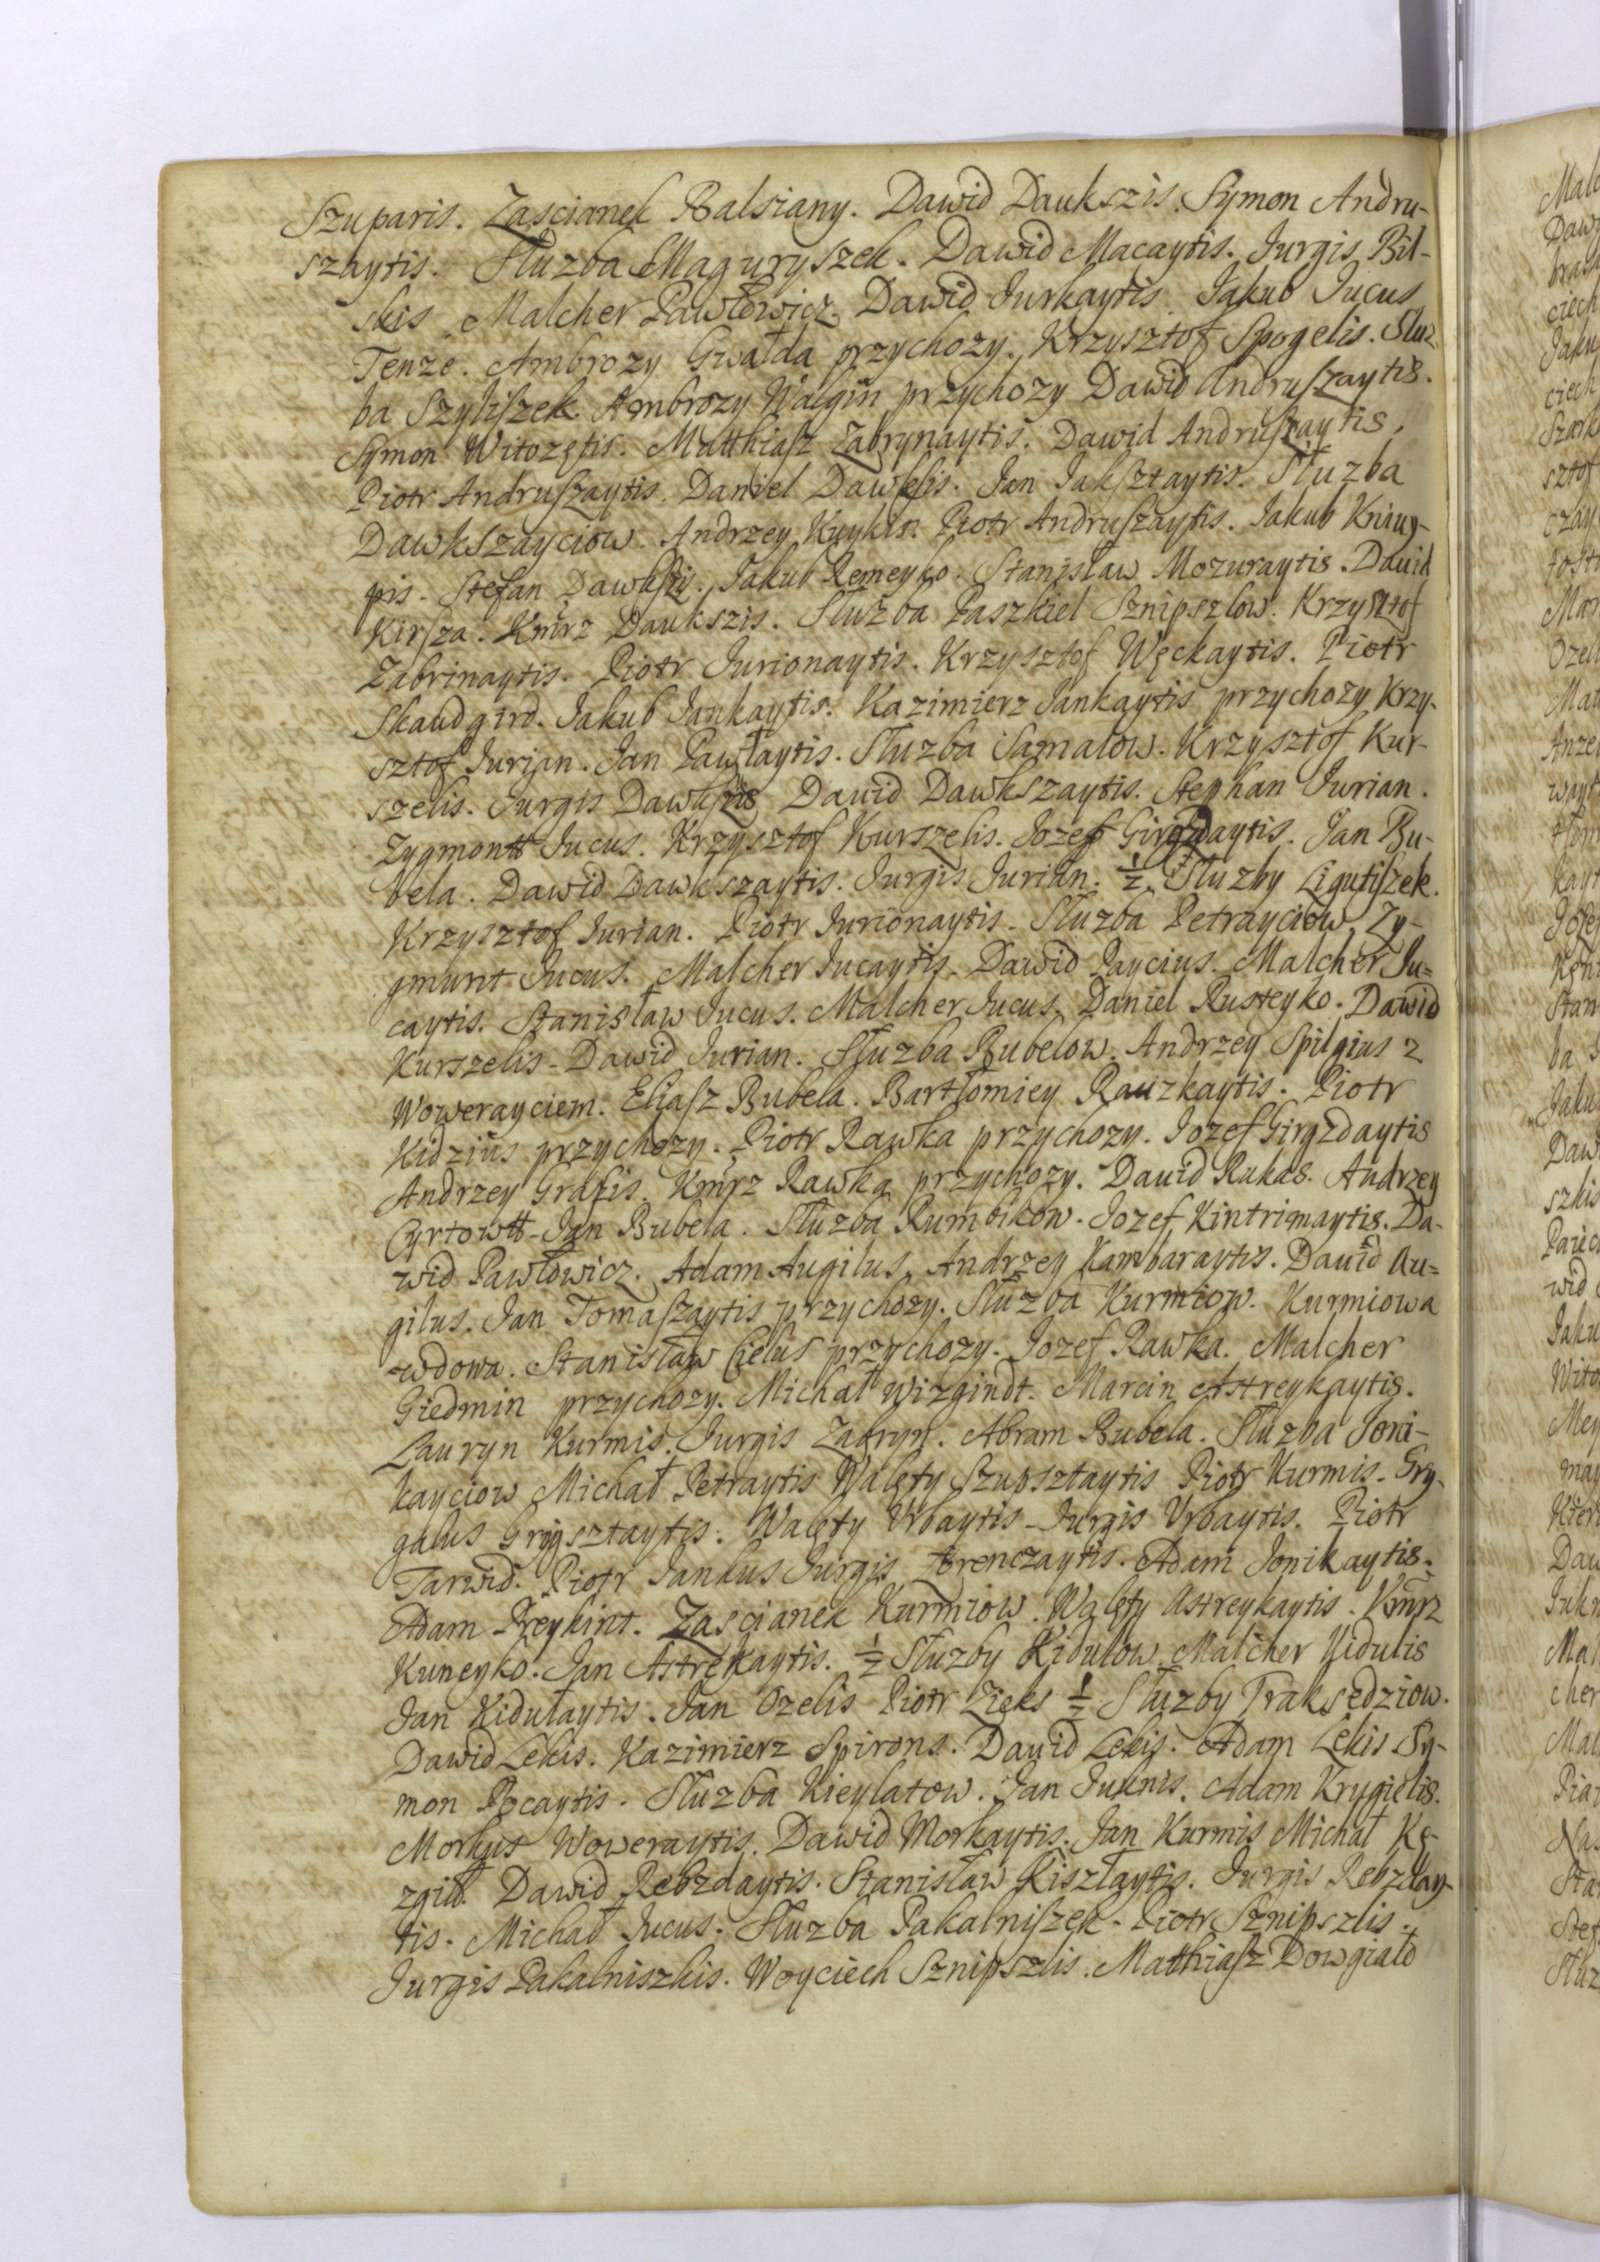 Szuparis. Zascianek Balsiany. Dawid Daukszis. Symon Andru-
szaytis. Służba Maguryszek. Dawid Macaytis. Jurgis Bil-
skis Malcher Pawłowicz. Dawid Jurkaytis. Jakub Jucus
Tenze. Ambrozy Gwałda przychozy. Krzysztof Spogelis. Służ
ba Szyliszek. Ambrozy Nalgin przychozy Dawid Andruszaytis.
Symon Witozętis. Matthiasz Zabrynaytis. Dawid Andruszaytis,
Piotr Andruszaytis. Daniel Dawksis. Jan Jaksztaytis. Służba
Dawkszayciow. Andrzey Kuykis. Piotr Andruszaytis. Jakub Kniuy-
pis. Stefan Dawkszy. Jakub Remeyko. Stanisław Mozuraytis. Dauid
Kirsza. Kmrz Daukszis. Służba Paszkiel Sznipszlow. Krzysztof
Zabrinaytis. Piotr Jurionaytis. Krzysztof Węckaytis. Piotr
Skaudgird. Jakub Jankaytis. Kazimierz Jankaytis przychozy Krzy-
sztof Jurian. Jan Pawłaytis. Służba Samałow. Krzysztof Kur-
szelis. Jurgis Dawkszis Dauid Dawkszaytis. Stephan Jurian.
Zygmontt Jucus. Krzysztof Kurszelis. Jozef Girgzdaytis. Jan Bu-
bela. Dawid Dawkszaytis. Jurgis Jurian. ½ Służby Ligutiszek.
Krzysztof Jurian. Piotr Jurionaytis. Służba Petrayciow. Zy-
gmunt Jucus. Malcher Jucaytis. Dawid Jaycius. Malcher Ju=
caytis. Stanisław Jucus. Malcher Jucus. Daniel Rusteyko. Dawid
Kurszelis. Dawid Jurian. Służba Bubelow. Andrzey Spilgius z
Wowerayciem. Eliasz Bubela. Bartłomiey Rauzkaytis. Piotr
Kidzius przychozy. Piotr Rawka przychozy. Jozef Girgzdaytis
Andrzey Grafis. Kmrz Rawka przychozy. Dauid Rukas. Andrzey
Cyrtowtt. Jan Bubela. Służba Rumbikow. Jozef Kintrimaytis. Da-
wid Pawłowicz. Adam Augilus. Andrzey Kambaraytis. Dauid Au=
gilus. Jan Tomaszaytis przychozy. Służba Kurmiow. Kurmiowa
wdowa. Stanisław Cielus przychozy. Jozef Rawka. Malcher
Giedmin przychozy. Michał Wizgindt. Marcin Astreykaytis.
Lauryn Kurmis. Jurgis Zabryn. Abram Bubela. Służba Joni-
kayciow Michał Petraytis Walęty Szupsztaytis Piotr Kurmis. Gry-
galus Grygsztaytis. Walęty Urbaytis. Jurgis Urbaytis. Piotr
Tarwid. Piotr Jankus Jurgis Brenczaytis. Adam Jonikaytis.
Adam Preykint. Zascianek Kurmiow. Walęty Astreykaytis. Kmrz
Kuneyko. Jan Astreykaytis. ½ Służby Kidułow. Malcher Kidulis
Jan Kidułaytis. Jan Ozelis Piotr Zięks ½ Służby Traksędziow.
Dawid Lekis. Kazimierz Spirons. Dauid Lekis. Adam Lekis Sy-
mon Pocaytis. Służba Kieylatow. Jan Juknis. Adam Krygielis.
Morkus Woweraytis. Dawid Morkaytis. Jan Kurmis Michał Kę-
zgił. Dawid Rebzdaytis. Stanisław Kisztaytis. Jurgis Rebzday-
tis. Michał Jucus. Służba Pakalniszek. Piotr Sznipszlis.
Jurgis Pakalniszkis. Woyciech Sznipszlis. Matthiasz Dowgiałd